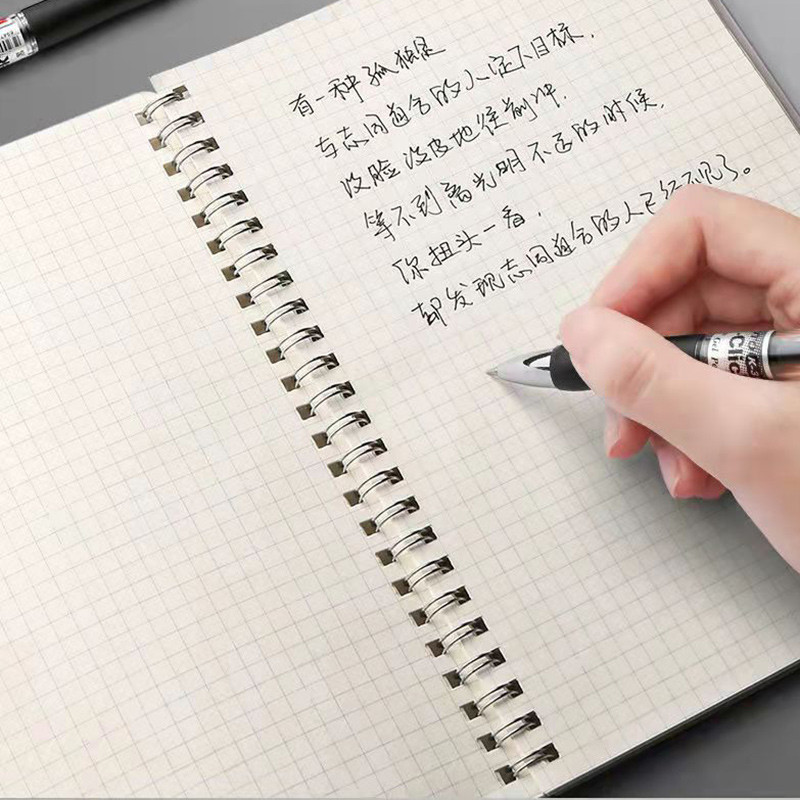 有一种孤独是
与志同道合的人定下目标，
没脸没皮地往前冲，
等不到离光明不远的时候，
你扭头一看，
却发现志同道合的人已经不见了。
clic